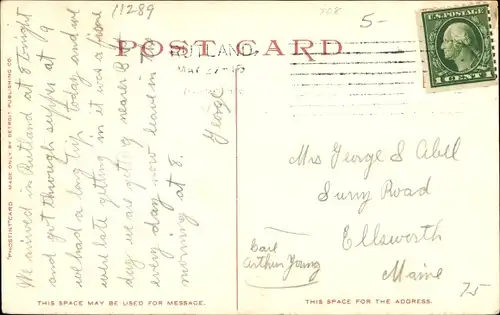 11289
908
5-
POST CARD
RUTLAND
U.S. POSTAGE
1 CENT 1
We arrived in Rutland at 8 tonight
and got through supper at 9
we had a long trip today and we
were late getting in it was a fine
day we are getting nearer
every day now leave in the
morning at 8.
George
Mrs George S Abell
Surry Road
Ellsworth
Maine
Care
Arthur Young
75
"PHOSTINT" CARD MADE ONLY BY DETROIT PUBLISHING CO.
THIS SPACE MAY BE USED FOR MESSAGE.
THIS SPACE IS FOR THE ADDRESS.